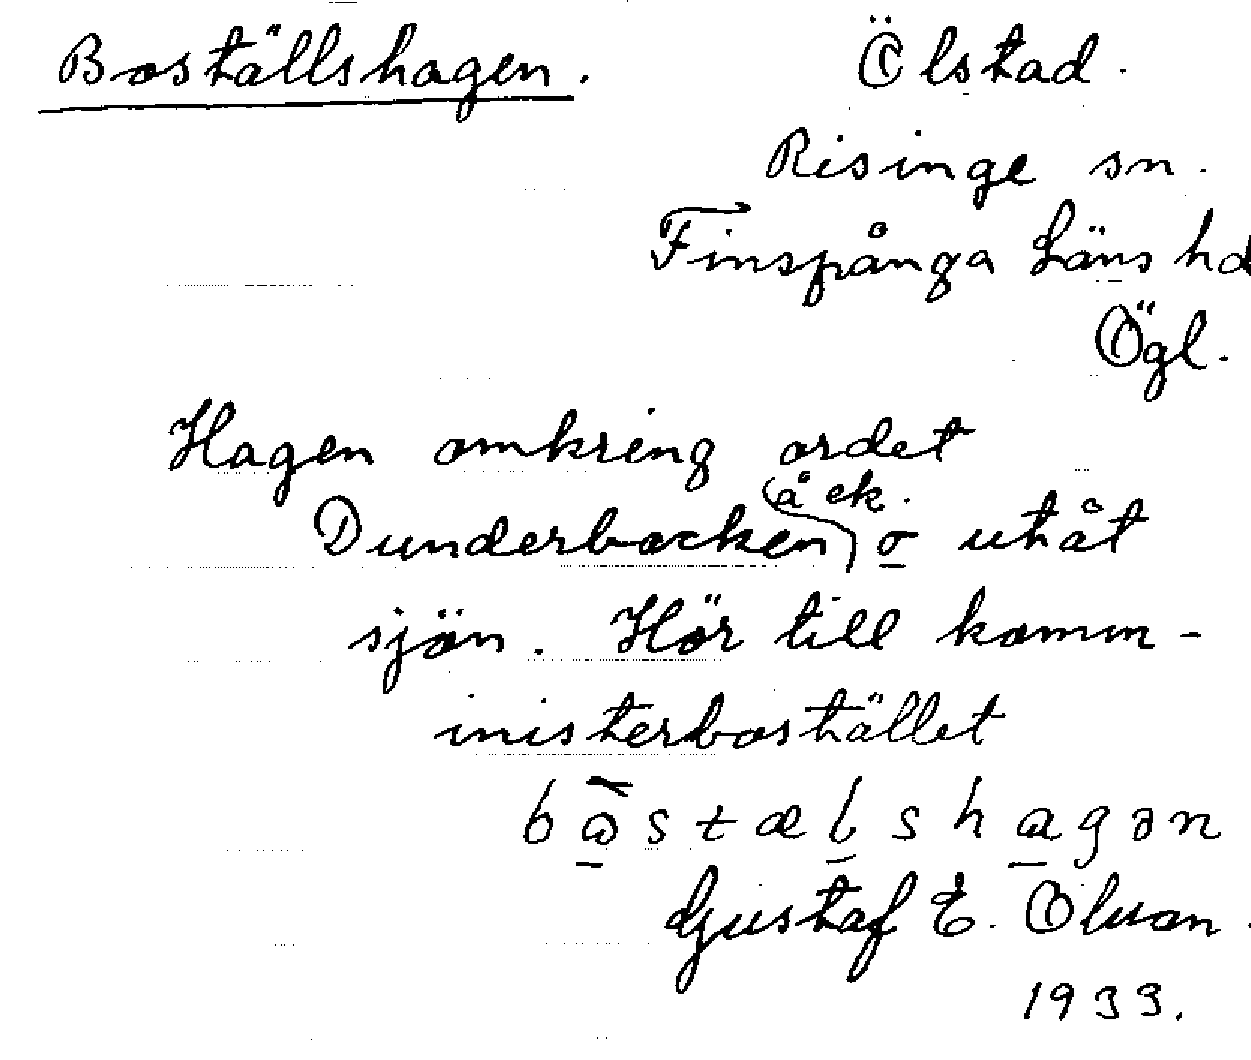 Boställshagen. Ölstad.
Risinge sn.
Finspånga Läns hd
Ögl.
Hagen omkring ordet
åek.
Dunderbacken o utåt
sjön. Hör till komm-
inisterbostället
Gustaf E. Olson.
1933.